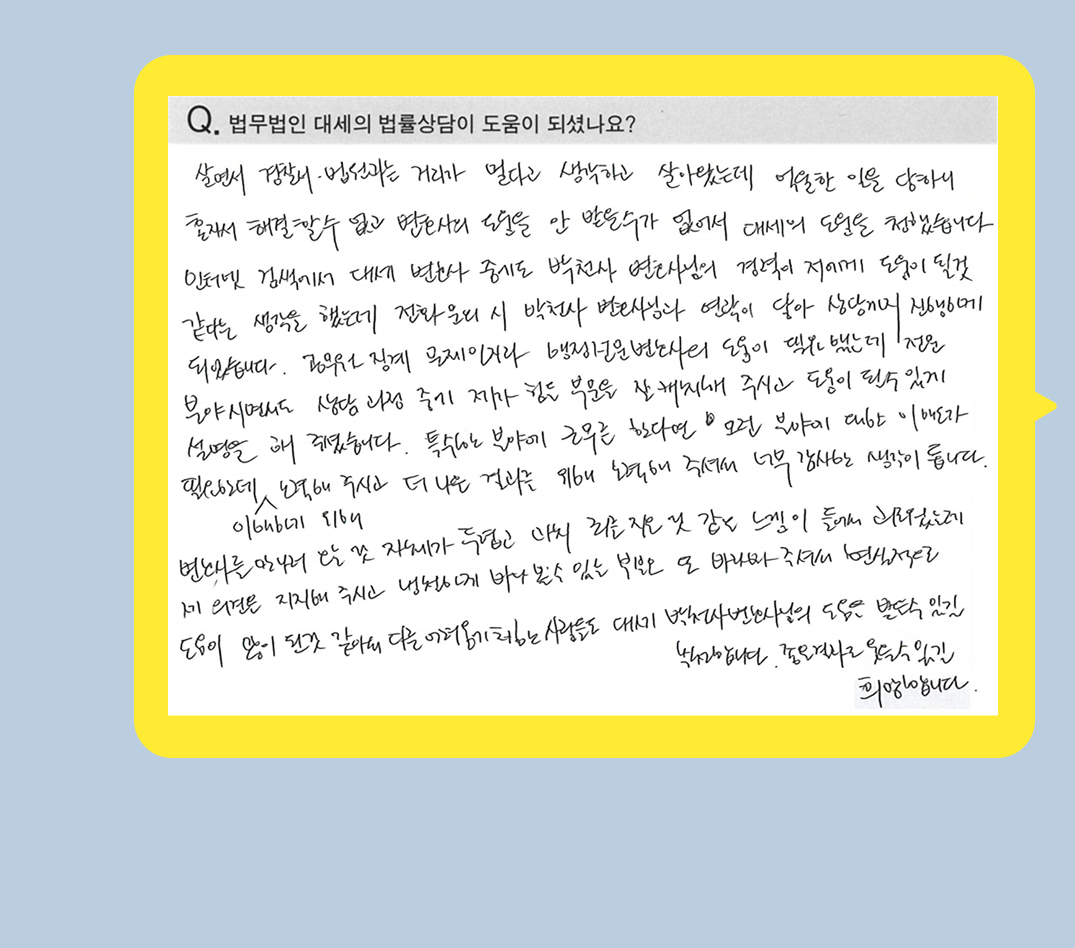 Q. 법무법인 대세의 법률상담이 도움이 되셨나요?
살면서 경찰서·법원과는 거리가 멀다고 생각하고 살아왔는데 억울한 일을 당하니
혼자서 해결할수 없고 변호사의 도움을 안 받을수가 없어서 대세의 도움을 청했습니다
인터넷 검색에서 대세 변호사 중에도 박천사 변호사님의 경력이 저에게 도움이 될것
같다는 생각을 했는데 전화문의 시 박천사 변호사님과 연락이 닿아 상담까지 진행하게
되었습니다. 공무원 징계 문제이거라 행정전문변호사의 도움이 필요했는데 전문
분야시면서도 상담 과정 중에 제가 힘든 부분을 잘 캐치해 주시고 도움이 될수 있게
설명을 해 주셨습니다. 특수한 분야에 근무를 한다면 그 모든 분야에 대한 이해도가
필요한데 노력해 주시고 더 나은 결과를 위해 노력해 주셔서 너무 감사한 생각이 듭니다.
이해하기 위해
변호사를 만나러 오는 것 자체가 두렵고 마치 죄를 지은 것 같은 느낌이 들어서 괴로웠는데
제 의견을 지지해 주시고 냉철하게 바라 볼수 있는 부분은 또 바라봐 주셔서 현실적으로
도움이 많이 된것 같아요 다른 어려움에 처하는 사람들도 대세 박천사변호사님의 도움을 받을수 있길
부탁합니다. 좋은결과로 웃을수 있길
희망합니다.